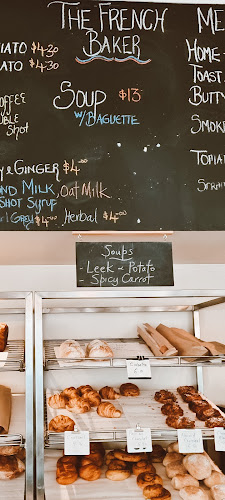 THE FRENCH
BAKER
ME
ATO $4.30
ATO $4.30
HOME
TOAST
BUTT
OFFEE
Shot
SOUP $13
W/ BAGUETTE
SMOK
& GINGER $4.00
OND MILK, OAT MILK
SHOT SYRUP
rl Grey $4.00 Herbal $4.00
TOPIA
Soups
- LEEK & POTATO
SPICY CARROT